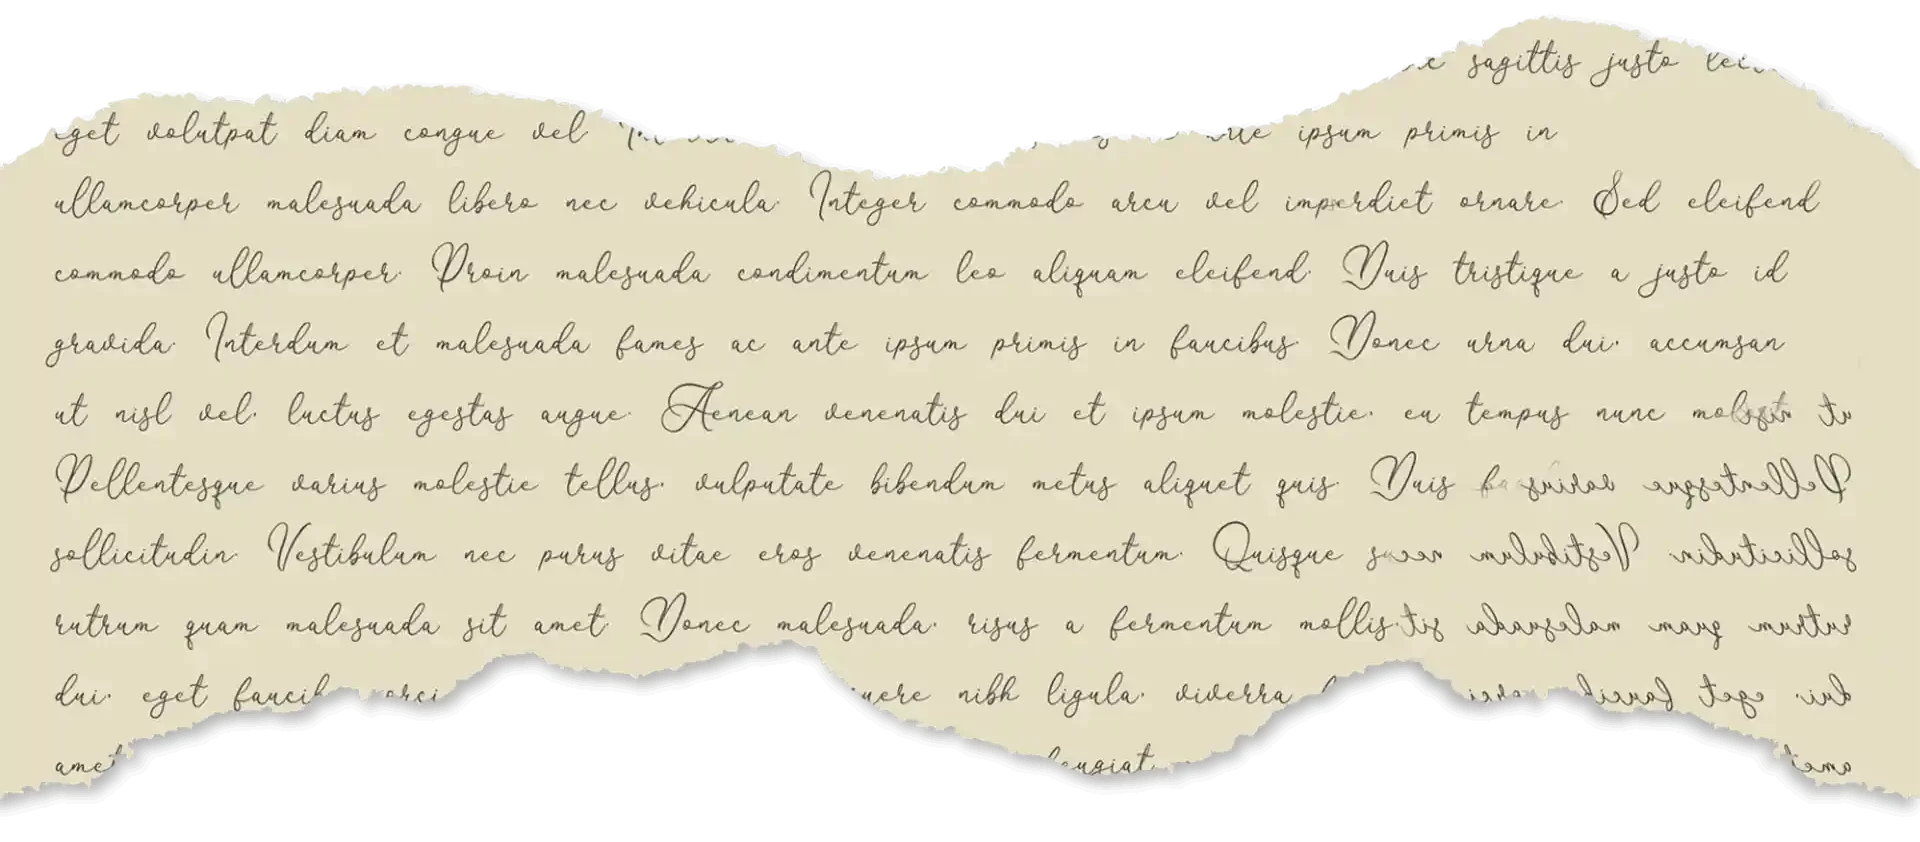 sagittis justo
eget volutpat diam congue vel ipsum primis in
ullamcorper malesuada libero nec vehicula. Integer commodo arcu vel imperdiet ornare. Sed eleifend
commodo ullamcorper. Proin malesuada condimentum leo aliquam eleifend. Duis tristique a justo id
gravida. Interdum et malesuada fames ac ante ipsum primis in faucibus. Donec urna dui, accumsan
ut nisl vel, luctus egestas augue. Aenean venenatis dui et ipsum molestie, eu tempus nunc ut
Pellentesque varius molestie tellus, vulputate bibendum metus aliquet quis. Duis varius Pellentesque
sollicitudin. Vestibulum nec purus vitae eros venenatis fermentum. Quisque nec Vestibulum sollicitudin
rutrum quam malesuada sit amet. Donec malesuada, risus a fermentum mollis. sit malesuada quam rutrum
dui, eget nibh ligula, viverra eget dui,
amet feugiat amet